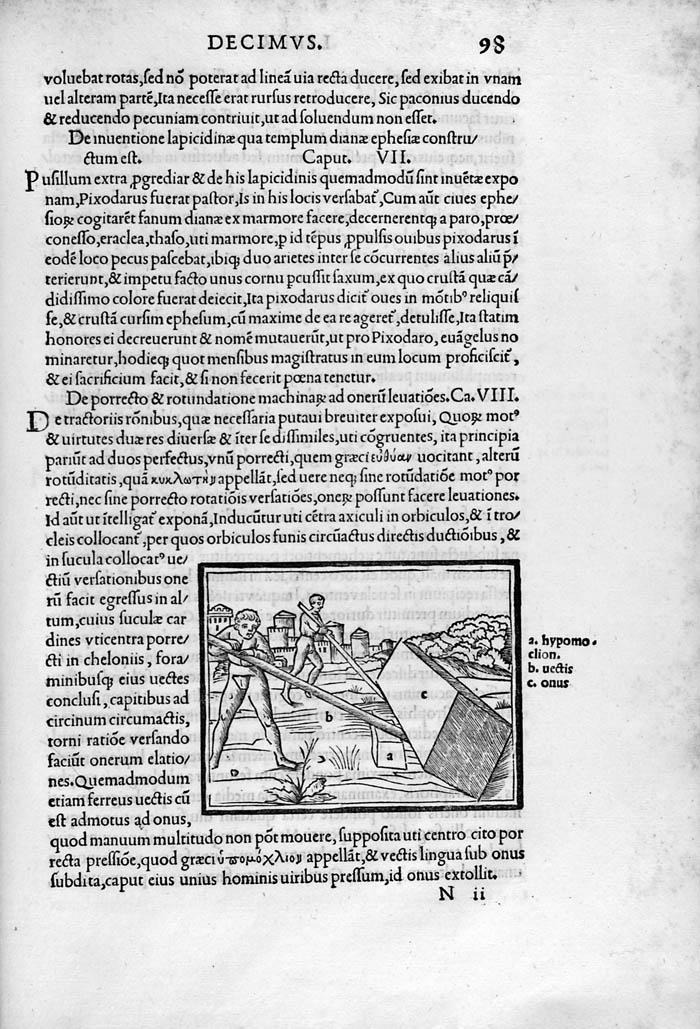 DECIMVS. 98
voluebat rotas, sed nō poterat ad lineā uia recta ducere, sed exibat in vnam
uel alteram partē, Ita necesse erat rursus retroducere, Sic paconius ducendo
& reducendo pecuniam contriuit, ut ad soluendum non esset.
De inuentione lapicidinæ qua templum dianæ ephesiæ constru/
ctum est. Caput. VII.
Pusillum extra ꝓgrediar & de his lapicidinis quemadmodū sint inuētæ expo
nam, Pixodarus fuerat pastor, Is in his locis versabat᷑, Cum aūt ciues ephe/
sioꝝ cogitarēt fanum dianæ ex marmore facere, decernerentqꝫ a paro, prœ/
conesso, eraclea, thaso, uti marmore, ꝑ id tēpus ꝓpulsis ouibus pixodarus ī
eodē loco pecus pascebat, ibiqꝫ duo arietes inter se cōcurrentes alius aliū p̄/
terierunt, & impetu facto unus cornu ꝑcussit saxum, ex quo crustā quæ cā/
didissimo colore fuerat deiecit, Ita pixodarus dicit᷑ oues in mōtibꝰ reliquis
se, & crustā cursim ephesum, cū maxime de ea re ageret᷑, detulisse, Ita statim
honores ei decreuerunt & nomē mutauerūt, ut pro Pixodaro, euāgelus no
minaretur, hodieqꝫ quot mensibus magistratus in eum locum proficiscit᷑,
& ei sacrificium facit, & si non fecerit pœna tenetur.
De porrecto & rotundatione machinaꝝ ad onerū leuatiōes. Ca. VIII.
De tractoriis rōnibus, quæ necessaria putaui breuiter exposui, Quoꝝ motꝰ
& uirtutes duæ res diuersæ & īter se dissimiles, uti cōgruentes, ita principia
pariūt ad duos perfectus, vnū porrecti, quem græci εὐθυαν uocitant, alterū
rotūditatis, quā κυκλωτὴν appellāt, sed uere neqꝫ sine rotūdatiōe motꝰ por
recti, nec sine porrecto rotatiōis versatiōes, oneꝝ possunt facere leuationes.
Id aūt ut ītelligat᷑ exponā, Inducūtur uti cētra axiculi in orbiculos, & ī tro/
cleis collocant᷑, per quos orbiculos funis circūactus directis ductiōibus, &
in sucula collocatꝰ ue/
ctiū versationibus one
rū facit egressus in al/
tum, cuius suculæ car
dines vticentra porre/
cti in cheloniis, fora/
minibusqꝫ eius uectes
conclusi, capitibus ad
circinum circumactis,
torni ratiōe versando
faciūt onerum elatio/
nes. Quemadmodum
etiam ferreus uectis cū
est admotus ad onus,
b
c
a
a. hypomo
clion.
b. uectis
c. onus
quod manuum multitudo non pōt mouere, supposita uti centro cito por
recta pressiōe, quod græci ὑπομόχλιον appellāt, & vectis lingua sub onus
subdita, caput eius unius hominis uiribus pressum, id onus extollit.
N ii